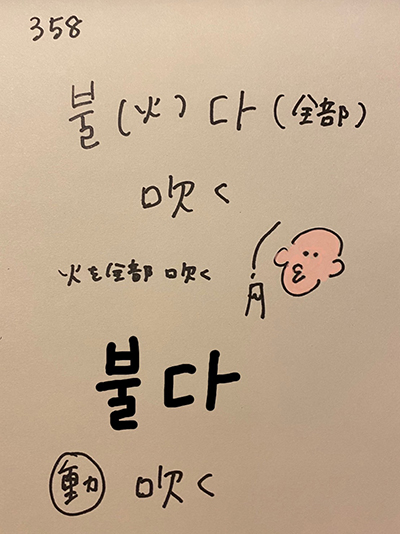 358
불(火)다(全部)
吹く
火を全部 吹く
불다
動 吹く